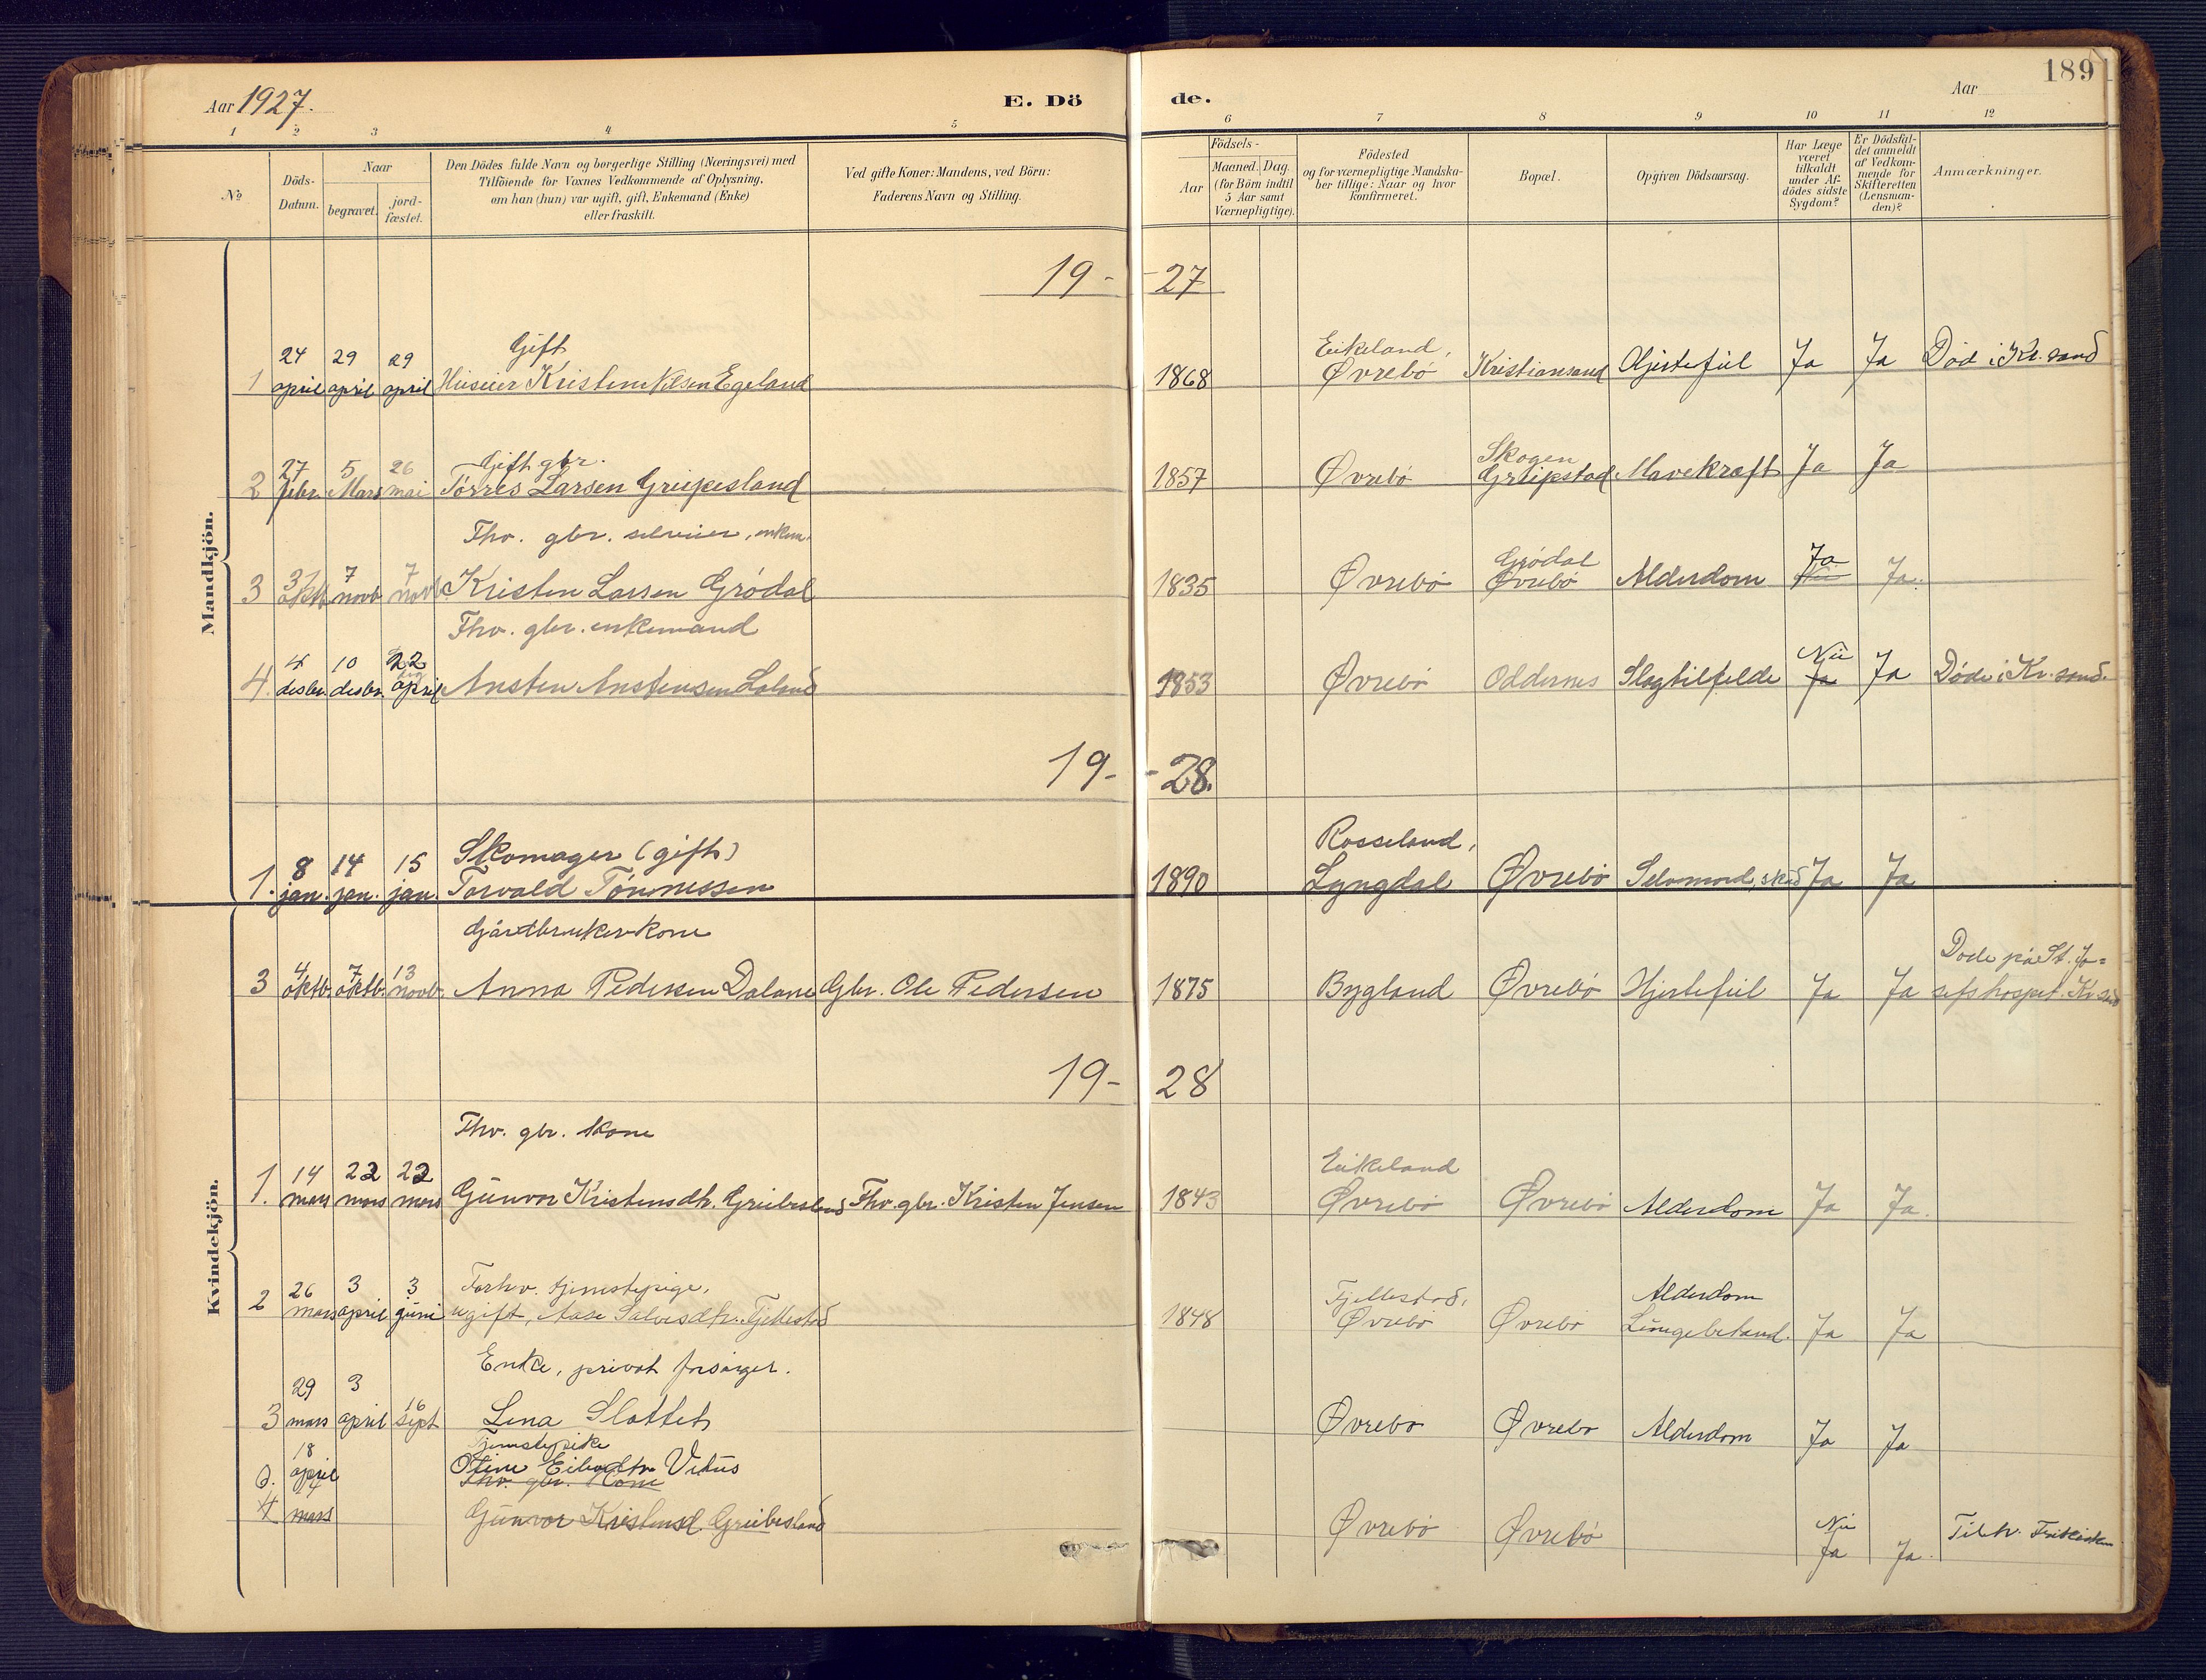 189
Aar 1927.
E. Dö de.
Aar
1 2 3 4 5 6 7 8 9 10 11 12
№
Döds-Datum.
Naar
begravet.
jord-fæstet.
Den Dödes fulde Navn og borgerlige Stilling (Næringsvei) med
Tilföiende for Voxnes Vedkommende af Oplysning,
om han (hun) var ugift, gift, Enkemand (Enke)
eller fraskilt.
Ved gifte Koner: Mandens, ved Börn:
Faderens Navn og Stilling.
Födsels-
Aar
Maaned. Dag.
(for Börn indtil
5 Aar samt
Værnepligtige).
Födested
og for værnepligtige Mandska-
ber tillige: Naar og hvor
konfirmeret.
Bopæl.
Opgiven Dödsaarsag.
Har Læge
været
tilkaldt
under Af-
dödes sidste
Sygdom?
Er Dödsfal-
det anmeldt
af Vedkom-
mende for
Skifteretten
(Lensman-
den)?
Anmærkninger.
Mandkjön.
19- -27
24 29 29 Gift Eikeland,
1 april april april Huseier Kristen Nilsen Egeland 1868 Øvrebö Kristiansand Hjertefeil Ja Ja Död i Kr. sand
27 5 26 Gift gbr. Skogen
2 febr. Mars mai Törres Larsen Greipesland 1857 Øvrebö Greipstad Mavekræft Ja Ja
Fhv. gbr. selveier, enkem.
31 7 7 Grödal Ja
3 oktb. novb. novb. Kristen Larsen Grödal 1835 Øvrebö Øvrebö Alderdom Nei Ja.
Fhv. gbr. enkemand
4 10 22 Nei
4. desbr. desbr. april Ansten Anstensen Laland 1853 Øvrebö Oddernes Slagtilfelde Ja Ja Döde i Kr. sand.
19- -28.
8 14 15 Skomager (gift) Rosseland,
1. jan. jan. jan. Torvald Tönnessen 1890 Lyngdal Øvrebö Selvmord Ja Ja
Kvindekjön.
Gårdbrukerkone
4 7 13 Döde på St. Jo=
3 oktb. oktb. novb. Anna Pedersen Dalane Gbr. Ole Pedersen 1875 Bygland Øvrebö Hjertefeil Ja Ja sefs hospit. Kr sand
19- 28
Fhv. gbr. kone
14 22 22 Eikeland
1. mars mars mars Gunvor Kristensdtr. Greibesland Fhv. gbr. Kristen Jensen 1843 Øvrebö Øvrebö Alderdom Ja Ja.
26 3 3 Forhv. tjenestepige, Fjellestad, Alderdom
2 mars april juni ugift, Aase Salvesdtr. Fjellestad 1848 Øvrebö Øvrebö Lungebetænd. Ja Ja
Enke, privat forsörget.
29 3 16
3 mars april sept Lina Slottet Øvrebö Øvrebö Alderdom Ja Ja
18 Tjenestepike
april Vehus
Fhv. gbr. Kone
4 mars Gunvor Kristensd. Greibesland Øvrebö Øvrebö Nei Ja Ja. Tilh. Frikirken